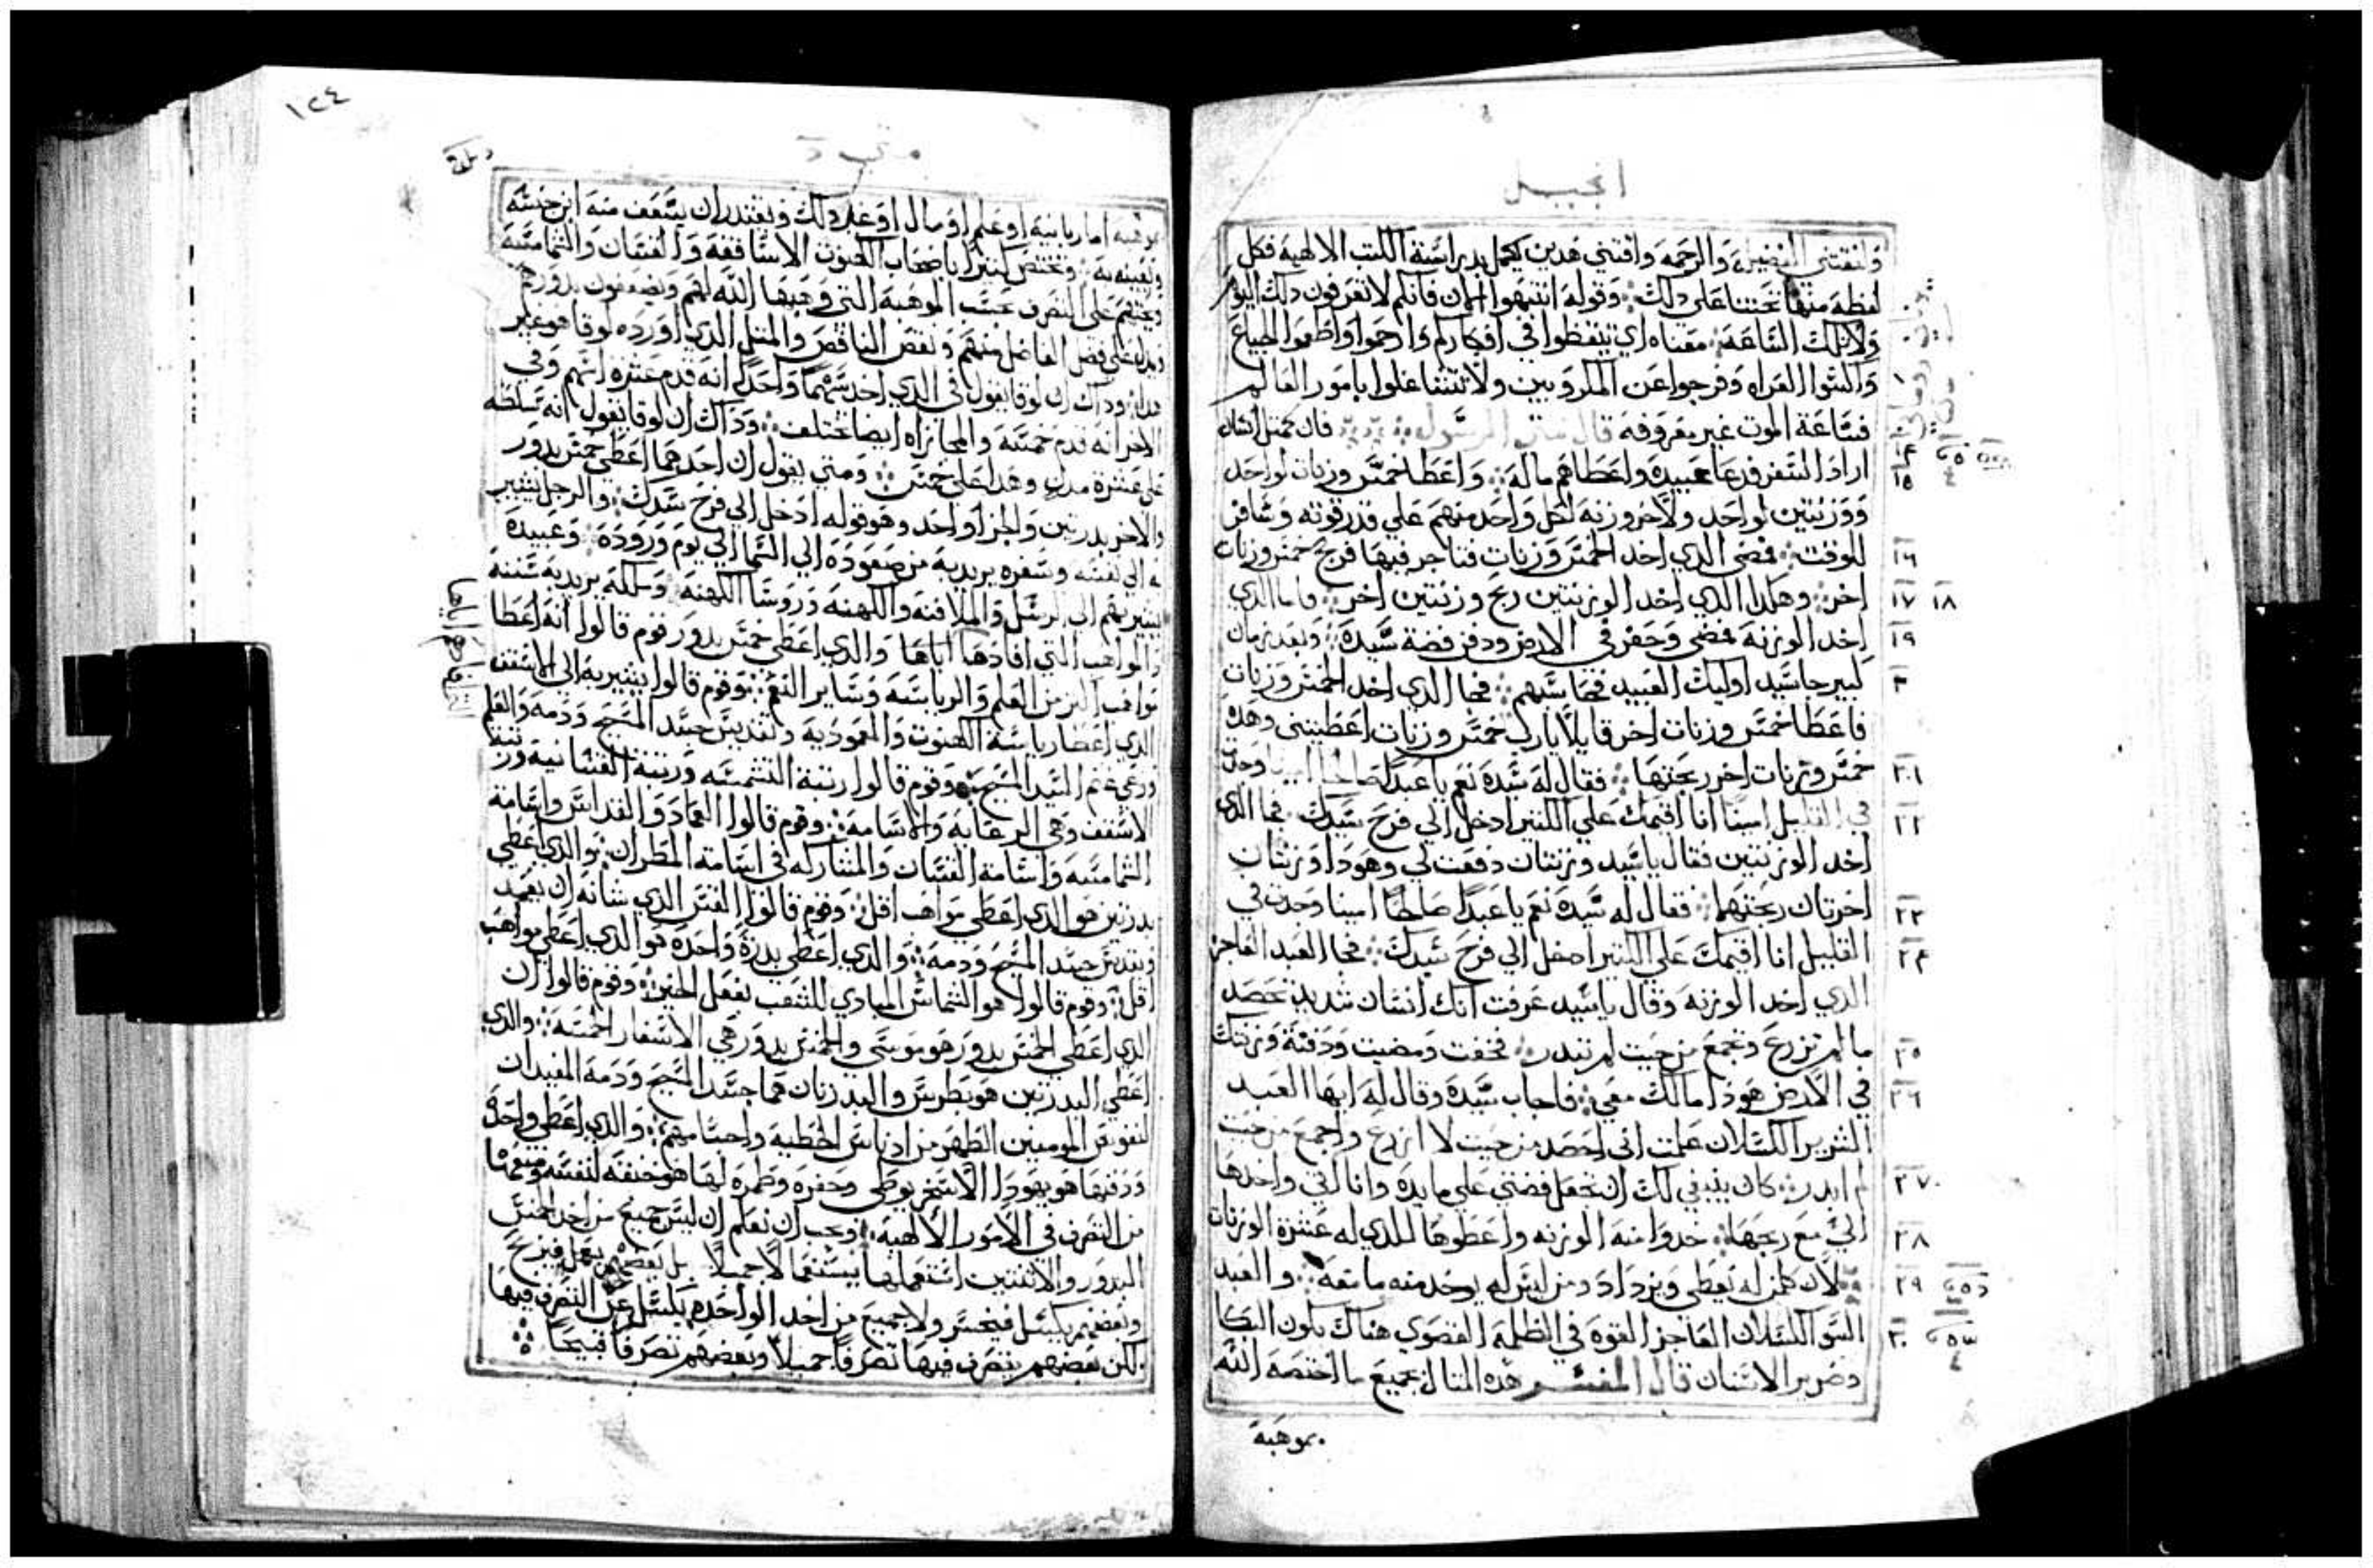 انجيل
ونقتني البصيره والرحمه واقتني هدين يكمل بدراسة الكتب الالهيه فكل
لفظه منها تحتنا على دلك وقوله انتبهوا الان فانكم لا تعرفون دلك اليوم
ولا تلك الساعه معناه اي تيقظوا في افكاركم وارحموا واطعموا الجياع
واكسوا العراه وفرجوا عن المكروبين ولا تتشاغلوا بامور العالم
فساعة الموت غير معروفه قال متى الرسول فان كمتل انسان
١٤
اراد السفر فدعا عبيده واعطاهم ماله واعطا خمس وزنات لواحد
١٥
ووزنتين لواحد ولاخر وزنه لكل واحد منهم على قدر قوته وسافر
للوقت فمضى الدي اخد الخمس وزنات فتاجر فيها فربح خمس وزنات
١٦
اخر وهكدا الدي اخد الوزنتين ربح وزنتين اخر فاما الدي
١٧ ١٨
اخد الوزنه فمضي وحفر في الارض ودفن فضة سيده وبعد زمان
١٩
كبير جا سيد اوليك العبيد فحاسبهم فجا الدي اخد الخمس وزنات
فاعطا خمس وزنات اخر قايلا يارب خمس وزنات اعطيتني وهده
خمس وزنات اخر ربحتها فقال له سيده نعم يا عبدا صالحا امينا وجدت
٢١
في القليل امينا انا اقيمك على الكتير ادخل الي فرح سيدك فجا الدي
٢٢
اخد الوزنتين فقال يا سيد وزنتان دفعت لي وهودا وزنتان
اخرتان ربحتهما فقال له سيده نعم يا عبدا صالحا امينا وجدت في
٢٣
القليل انا اقيمك على الكتير ادخل الي فرح سيدك فجا العبد العاجز
٢٤
الدي اخد الوزنه وقال يا سيد عرفت انك انسان شديد تحصد
ما لم تزرع وتجمع من حيت لم تبدر فخفت ومضيت ودفنة وزنتك
٢٥
في الارض هودا مالك معي فاجاب سيده وقال له ايها العبد
٢٦
الشرير الكسلان علمت اني احصد من حيت لا ازرع واجمع من حيت
لم ابدر كان ينبغي لك ان تجعل فضتي على مايده وانا اتي واخدها
٢٧
الي مع ربحها خدوا منه الوزنه واعطوها للدي له عشرة الوزنات
٢٨
لان كلمن له يعطى ويزداد ومن ليس له يوخد منه ما معه والعبد
٢٩
السو الكسلان العاجز القوه في الظلمه القصوي هناك يكون البكا
٣٠
وصرير الاسنان قال المفسر هده المتال بجميع ما اختصه الله
بموهبة
١٢٤
بموهبه اما ربانيه او علم او مال او غير دلك ويقتدر ان يسعف منه ابن جنسه
ويعينه به وتختص كتيرا باصحاب الكهنوت الاساقفه والقسان والشمامسه
وتحتهم على التصرف بحسب الموهبه التي وهبها الله لهم ويضعفون بدورهم
ويدل على فضل الفاضل منهم ونقص الناقص والمتل الدي اورده لوقا هو غير
هدا وداك ان لوقا يقول في الدي اخد سهما واحدا انه قدم عشره اسهم وفي
الاخر انه قدم خمسه والمجازاه ايضا تختلف وداك ان لوقا يقول انه سلطه
على عشرة مدن وهدا على خمس ومتي يقول ان احدهما اعطي خمس بدور
والاخر بدرتين والجزا واحد وهو قوله ادخل الي فرح سيدك والرجل يشير
به الي نفسه وسفره يريد به من صعوده الي السما الي يوم وروده وعبيده
يشير بهم الى الرسل والملافنه والكهنه وروسا الكهنه وملكه يريد به سننه
والمواهب التي افادها اياها والدي اعطي خمس بدور قوم قالوا انه اعطا
مواهب اكتر من العلم والرياسه وساير النعم وقوم قالوا يشير به الى الاسقف
الدي اعطا رياسة الكهنوت والمعموديه وتقديس جسد المسيح ودمه والعلم
ورعي غنم السيد المسيح وقوم قالوا رتبة الشمسه ورتبة القسانيه ورتبة
الاسقف وهي الرعايه والاسامه وقوم قالوا العماد والقداس واسامة
الشمامسه واسامة القسان والمشاركه في اسامة المطران والدي اعطي
بدرتين هو الدي اعطي مواهب اقل وقوم قالوا القس الدي شانه ان يعمد
ويقدس جسد المسيح ودمه والدي اعطي بدرة واحده هو الدي اعطي مواهب
اقل وقوم قالوا هو الشماش المبادي للشعب بفعل الخير وقوم قالوا ان
الدي اعطي الخمس بدور هو موسى والخمس بدور هي الاسفار الخمسه والدي
اعطي البدرتين هو بطرس والبدرتان هما جسد المسيح ودمه المفيدان
لنفوس المومنين الطهر من ادناس الخطيه واجسامهم والدي اعطي واحده
ودفنها هو يهودا الاسخريوطي وحفره وطمره لها هو خنقه لنفسه ومنعها
من التصرف في الامور الالهيه ويجب ان نعلم ان ليس جميع من اخد الخمس
البدور والاتنتين استعملها استعمالا جميلا بل بعضهم يعمل فيربح
وبعضهم يكسل فيخسر ولا جميع من اخد الواحده يكسل عن التصرف فيها
لكن بعضهم يتصرف فيها تصرفا جميلا وبعضهم تصرفا قبيحا